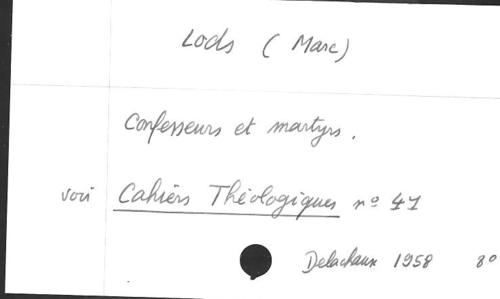 Lods (Marc)
Confesseurs et martyrs.
voir Cahiers Théologiques nº 41
Delachaux 1958 8º